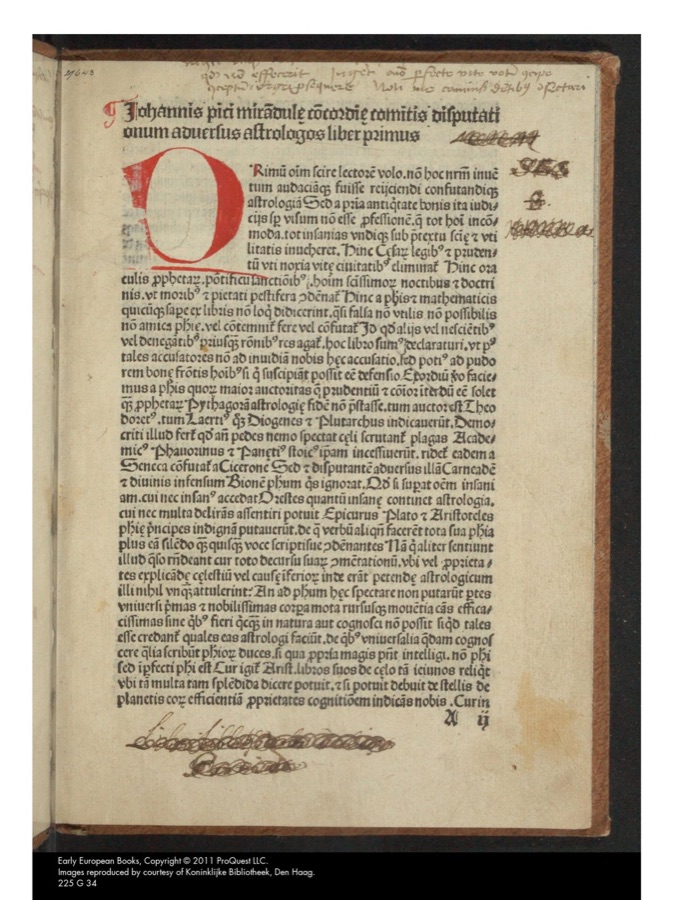 Johannis pici mirãdulę cõcordię comitis disputati
onum aduersus astrologos liber primus
PRimũ oĩm scire lectorẽ volo. nõ hoc nrm̃ inuẽ
tum audaciãqꝫ fuisse reijciendi confutandiqꝫ
astrologiã Sed a pria antiqͥtate bonis ita iudi-
cijs sp visum nõ esse ꝓfessionẽ. q̃ tot hoĩ incõ-
moda. tot insanias vndiqꝫ sub p̃textu sciẽ ⁊ vti
litatis inueheret. Hinc Cęsaꝝ legibꝰ ⁊ pruden-
tũ vti noxia vitę ciuitatibꝰ eliminat᷑ Hinc ora
culis ꝓphetaꝝ. põtificũ sanctiõibꝰ. hoim sc̃issimoꝝ noctibus ⁊ doctri
nis. vt moribꝰ ⁊ pietati pestifera ꝯdẽnat᷑ Hinc a ph̃is ⁊ mathematicis
quicũqꝫ sape ex libris nõ loq̃ didicerint. q̃si falsa nõ vtilis nõ possibilis
nõ amica ph̃ie. vel cõtemnit᷑ fere vel cõfutat᷑ Id qd̃ alijs vel nesciẽtibꝰ
vel denegãtibꝰ priusqꝫ rõnibꝰ res agat᷑. hoc libro sumꝰ declaraturi. vt pꝰ
tales accusatores nõ ad inuidiã nobis hęc accusatio. sed potiꝰ ad pudo
rem bonę frõtis hoĩbꝰ si q̃ suscipiãt possit eẽ defensio. Exordiũ ꝟo facie-
mus a ph̃is quoꝝ maior auctoritas q̃ prudentiũ ⁊ cõior iterdũ eẽ solet
qꝫ ꝓphetaꝝ Pythagorã astrologię fidẽ nõ p̃stasse. tum auctor est Theo
doretꝰ. tum Laertiꝰ qꝫ Diogenes ⁊ Plutarchus indicauerũt. Demo-
criti illud fert᷑ qd̃ añ pedes nemo spectat cęli scrutant᷑ plagas Acade-
micꝰ Phauorinus ⁊ Panętiꝰ stoicꝰ ip̃am incessiuerũt. ridet᷑ eadem a
Seneca cõfutat᷑ a Cicerone Sed ⁊ disputantẽ aduersus illã Carneadẽ
⁊ diuinis infensum Bionẽ ph̃um q̃s ignorat. Qd̃ si supat oẽm insani
am. cui nec insanꝰ accedat Orestes quantũ insanę continet astrologia.
cui nec multa delirãs assentiri potuit Epicurus Plato ⁊ Aristoteles
ph̃ię p̃ncipes indignã putauerũt. de q̃ verbũ aliqñ facerẽt tota sua ph̃ia
plus eã silẽdo qꝫ quisqꝫ voce scriptisue ꝯdẽnantes Nã q̃ aliter sentiunt
illud q̃so rñdeant cur toto decursu suaꝝ ꝯmẽtationũ. vbi vel ꝓprieta-
tes explicãdę cęlestiũ vel causę iferioꝝ inde erãt petendę astrologicum
illi nihil vnqꝫ attulerint: An ad ph̃um hęc spectare non putarũt ptes
vniuersi p̃mas ⁊ nobilissimas corpa mota rursusqꝫ mouẽtia cãs effica-
cissimas sine qͥbꝰ fieri q̃cqꝫ in natura aut cognosci nõ possit si qd̃ tales
esse credant᷑ quales eas astrologi faciũt. de qͥbꝰ vniuersalia q̃dam cognos
cere q̃lia scribũt ph̃ioꝝ duces. si qua ꝓpria magis pñt intelligi. nõ ph̃i
sed ip̃fecti ph̃i est Cur igit᷑ Arist. libros suos de cęlo tã ieiunos reliqͥt
vbi tã multa tam splẽdida dicere potuit. ⁊ si potuit debuit de stellis de
planetis eoꝝ efficientiã ꝓprietates cognitiõem indicãs nobis . Cur in
A ij
Early European Books, Copyright © 2011 ProQuest LLC.
Images reproduced by courtesy of Koninklijke Bibliotheek, Den Haag.
225 G 34